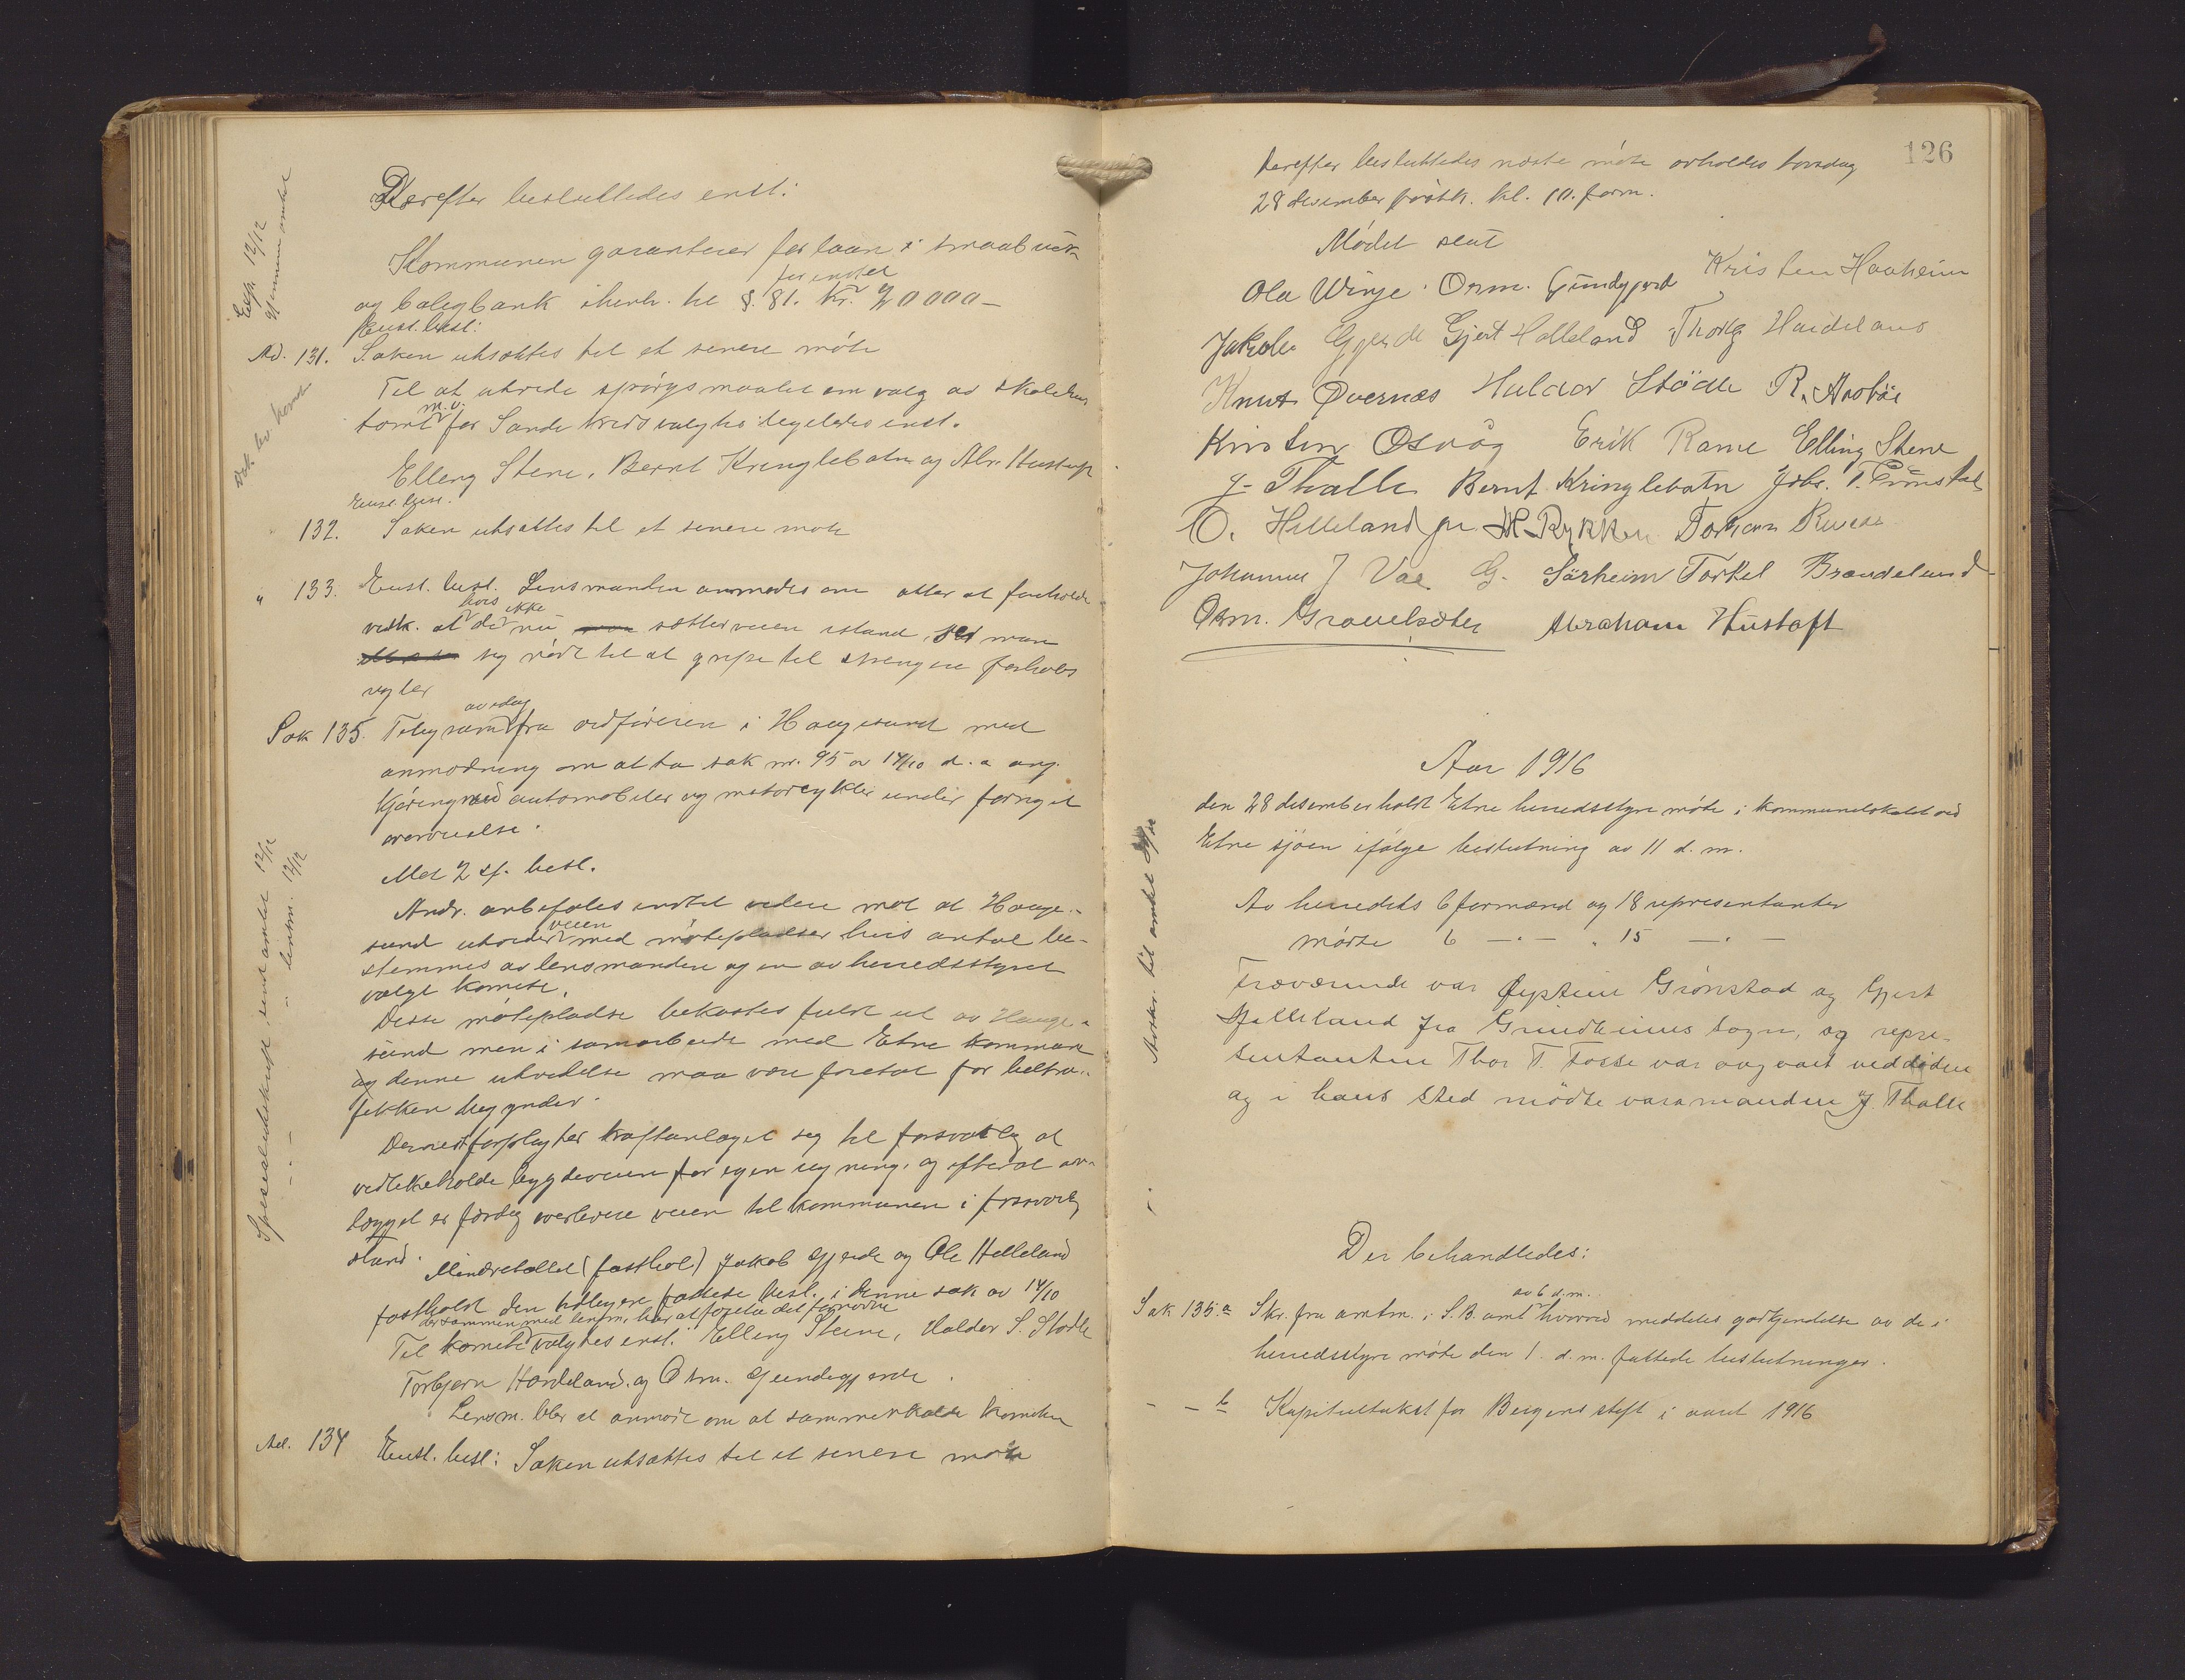 Exp. 12/12
gjennem amtet
Derefter besluttedes enst:
Kommunen garanterer for laan i smaabruk
for inntil
og boligbank ihenh. til §. 81. Kr. 20000 —
Enst. besl:
Ad. 131. Saken utsættes til et senere møte
Til at utrede spørgsmaalet om valg av skolehus
m.v.
tomt for Sande kreds valgtes likeledes enst.
Elling Stene, Bernt Kringlebotn og Abr. Hustoft
Enst. besl.
132. Saken utsættes til et senere møte
" 133. Enst. besl. Lensmanden anmodes om atter at foreholde
hvis ikke
vedk. at de nu sætter veien istand, ser man
sig nødt til at gripe til strengere forholds
regler
av idag
Sak 135. Telegram fra ordføreren i Haugesund med
anmodning om at ta sak nr. 95 av 14/10 d. a ang.
kjøring med automobiler og motorcykler under fornyet
overveielse.
Med 2 st. besl.
Andr. anbefales indtil videre mot at Hauge-
veien
sund utvider med møtepladser hvis antal be-
stemmes av lensmanden og en av herredsstyret
valgt komite.
Disse møtepladse bekostes fuldt ut av Hauge-
sund men i samarbeide med Etne kommune
og denne utvidelse maa være foretat før biltra-
fikken begynder.
Dernest forpligter kraftanlæget sig til forsvarlig at
vedlikeholde bygdeveien for egen regning, og efterat an-
lægget er færdig overlevere veien til kommunen i forsvarlig
stand.
Mindretallet Jakob Gjerde og Ole Helleland
fastholdt den tidligere fattede besl. i denne sak av 14/10
der sammen med lensm. har at foreta det fornødne
Til komite valgtes enst: Elling Stene, Haldor S. Stødle
Torbjørn Hardeland, og Osm. Grindegjerde.
Lensm. blir at anmode om at sammenkalde komiteen
Ad. 134 Enst. besl: Saken utsættes til et senere møte
Spesialutskrift sendt amtet 12/12
— " — lensm. 12/12
126
Derefter besluttedes næste møte avholdes torsdag
28 desember førstk. kl. 10. form.
Mødet slut
Ola Winje. Osm. Grindgjerd Kristen Haaheim
Jakob Gjerde Gjert Helleland Thorbj Hardeland
Knut Øvernæs Haldor Stødle R. Aasbøe
Kristen Osvåg Erik Rame Elling Stene
J. Thalle Bernt Kringlebotn Johs. T. Grønstad
O. Helleland jr M Rykken
Johannes J Vae G. Särheim Torkel Brandeland
Osm. Gravelsæter Abraham Hustoft
Aar 1916
den 28 desember holdt Etne herredsstyre møte i kommunelokalet ved
Etne sjøen ifølge beslutning av 11 d. m.
Av herredets 6 formænd og 18 representanter
mødte 6 — " — " 15 — " —
Fraværende var Øystein Grønstad og Gjert
Helleland fra Grindheims sogn, og repre-
sentanten Thor T. Fosse var avgaaet ved døden
og i hans sted mødte varamanden J. Thalle
Der behandledes:
av 6 d.m.
Sak 135.a Skr. fra amtm. i S. B. amt hvorved meddeles godkjendelse av de i
herredsstyre møte den 1. d. m. fattede beslutninger.
— — b Kapitelstakst for Bergens stift i aaret 1916